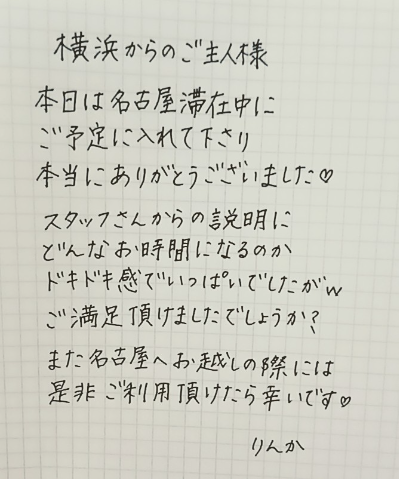 横浜からのご主人様
本日は名古屋滞在中に
ご予定に入れて下さり
本当にありがとうございました♡
スタッフさんからの説明に
どんなお時間になるのか
ドキドキ感でいっぱいでしたがw
ご満足頂けましたでしょうか?
また名古屋へお越しの際には
是非ご利用頂けたら幸いです♡
りんか